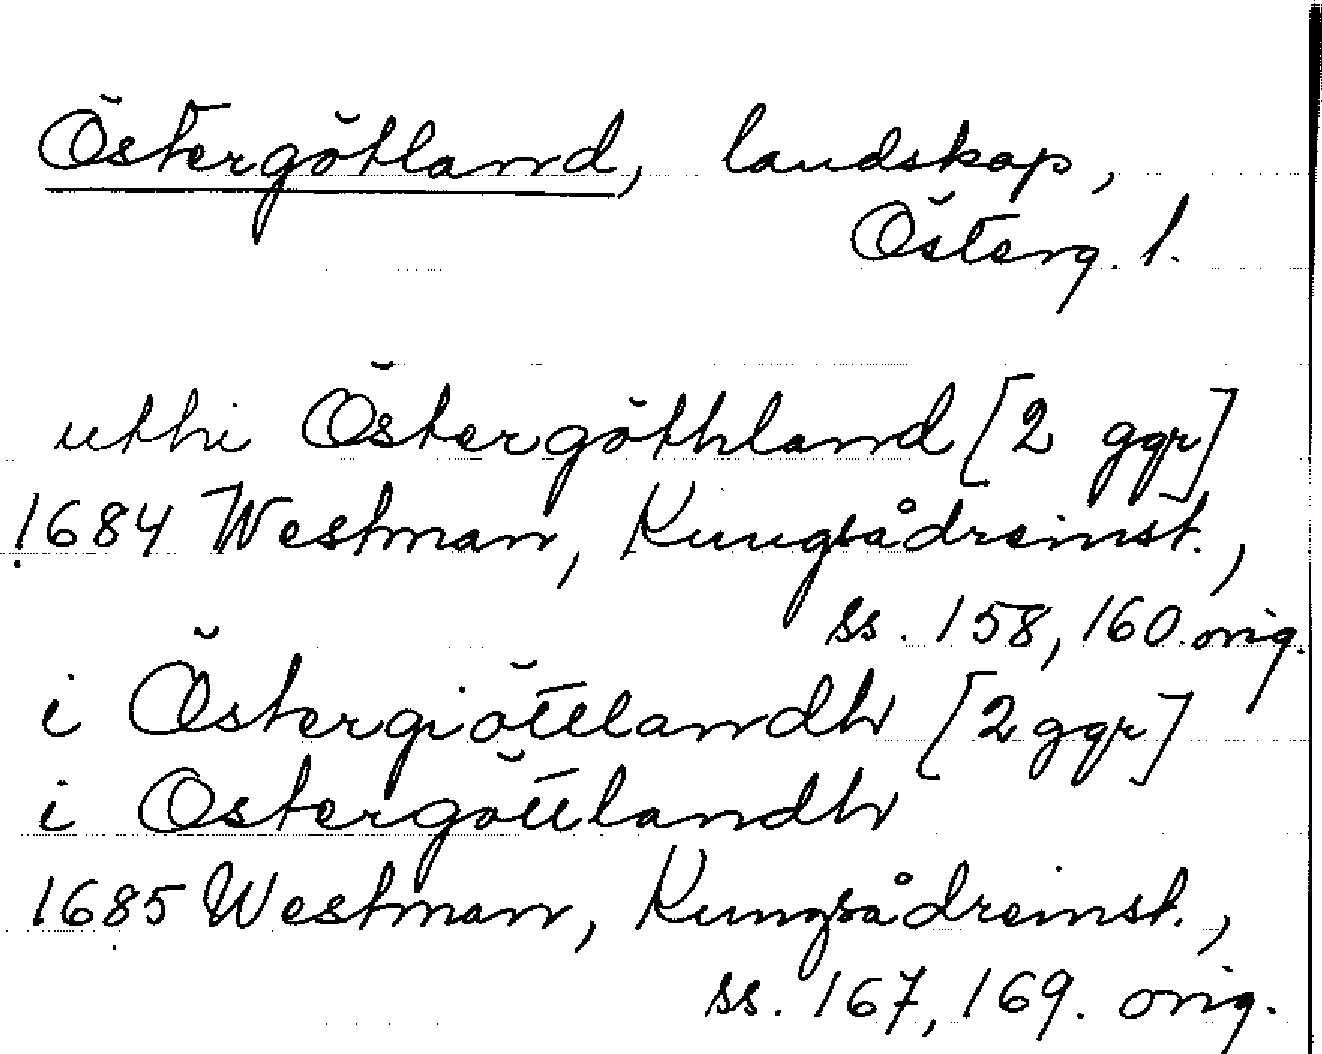 Östergötland, landskap,
Österg. l.
uthi Östergöthland [2 ggr]
1684 Westman, Kungsådreinst.,
ss. 158, 160. orig.
i Östergiöttlandh [2 ggr]
i Ostergöttlandh
1685 Westman, Kungsådreinst.,
ss. 167, 169. orig.